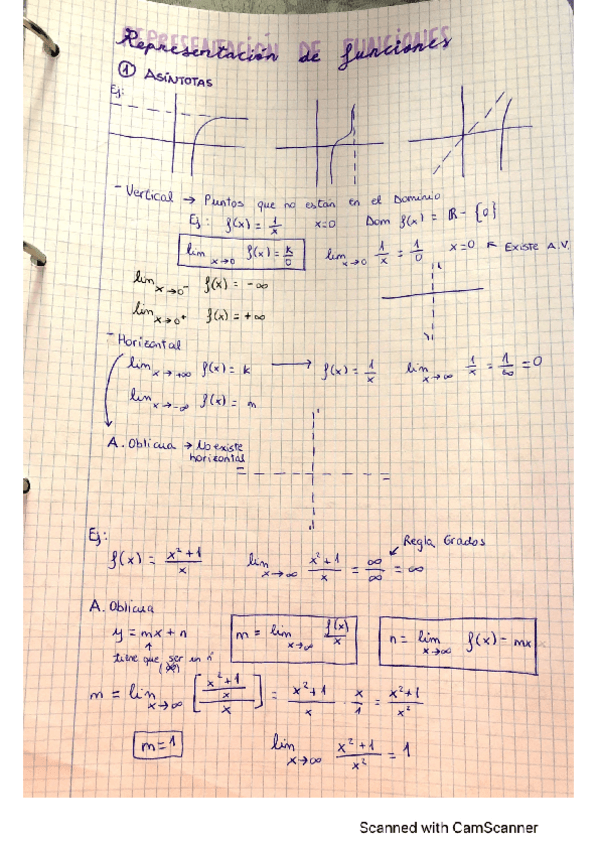 REPRESENTACIÓN DE FUNCIONES
Representación de funciones
① ASÍNTOTAS
Ej:
- Vertical → Puntos que no estan en el Dominio
Ej: f(x) = 1/x x=0 Dom f(x) = ℝ - {0}
lim x→0 f(x) = k/0 lim x→0 1/x = 1/0 x=0 ← Existe A.V.
lim x→0⁻ f(x) = -∞
lim x→0⁺ f(x) = +∞
- Horizontal
lim x→+∞ f(x) = k → f(x) = 1/x lim x→∞ 1/x = 1/∞ = 0
lim x→-∞ f(x) = m
A. Oblicua → No existe
horizontal
Ej:
Regla Grados
f(x) = x²+1/x lim x→∞ x²+1/x = ∞/∞ = ∞
A. Oblicua
y = mx + n m = lim x→∞ f(x)/x n = lim x→∞ f(x) - mx
↑
tiene que ser un nº
m = lim x→∞ [x²+1/x / x] = x²+1/x · x/1 = x²+1/x²
m=1 lim x→∞ x²+1/x² = 1
Scanned with CamScanner